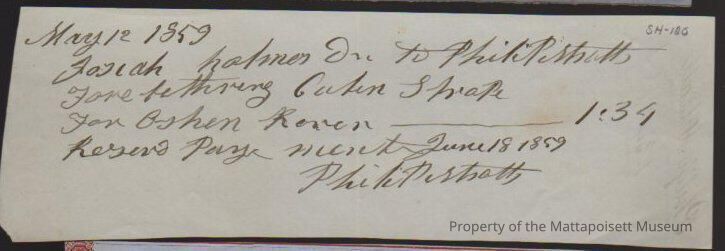 SH-186
May 12 1859
Josiah holmes Dr to Philip Stratts
Fore lettering Caben Strape
For Oshen Roven 1:34
Reserd Paye ment June 18 1859
Philip Stratts
Property of the Mattapoisett Museum